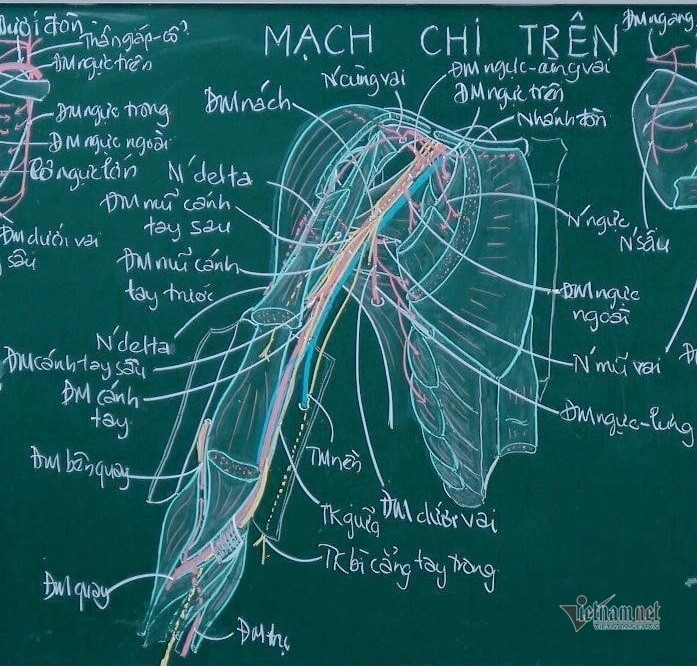 Dưới đòn
Thân giáp-cổ
ĐM ngực trên
ĐM ngực trong
ĐM ngực ngoài
Cơ ngực lớn
ĐM dưới vai
sâu
MẠCH CHI TRÊN
N' cùng vai
ĐM ngực-cùng vai
ĐM nách
ĐM ngực trên
Nhánh đòn
N' delta
ĐM mũ cánh
tay sau
ĐM mũ cánh
tay trước
N' delta
ĐM cánh tay sâu
ĐM cánh
tay
ĐM bên quay
ĐM quay
ĐM trụ
TM nền
TK giữa
ĐM dưới vai
TK bì cẳng tay trong
N' ngực
ĐM ngực
ngoài
N' mũ vai
ĐM ngực-lưng
ĐM ngang
N' sâu
Vietnam.net
VIETNAMNET.VN